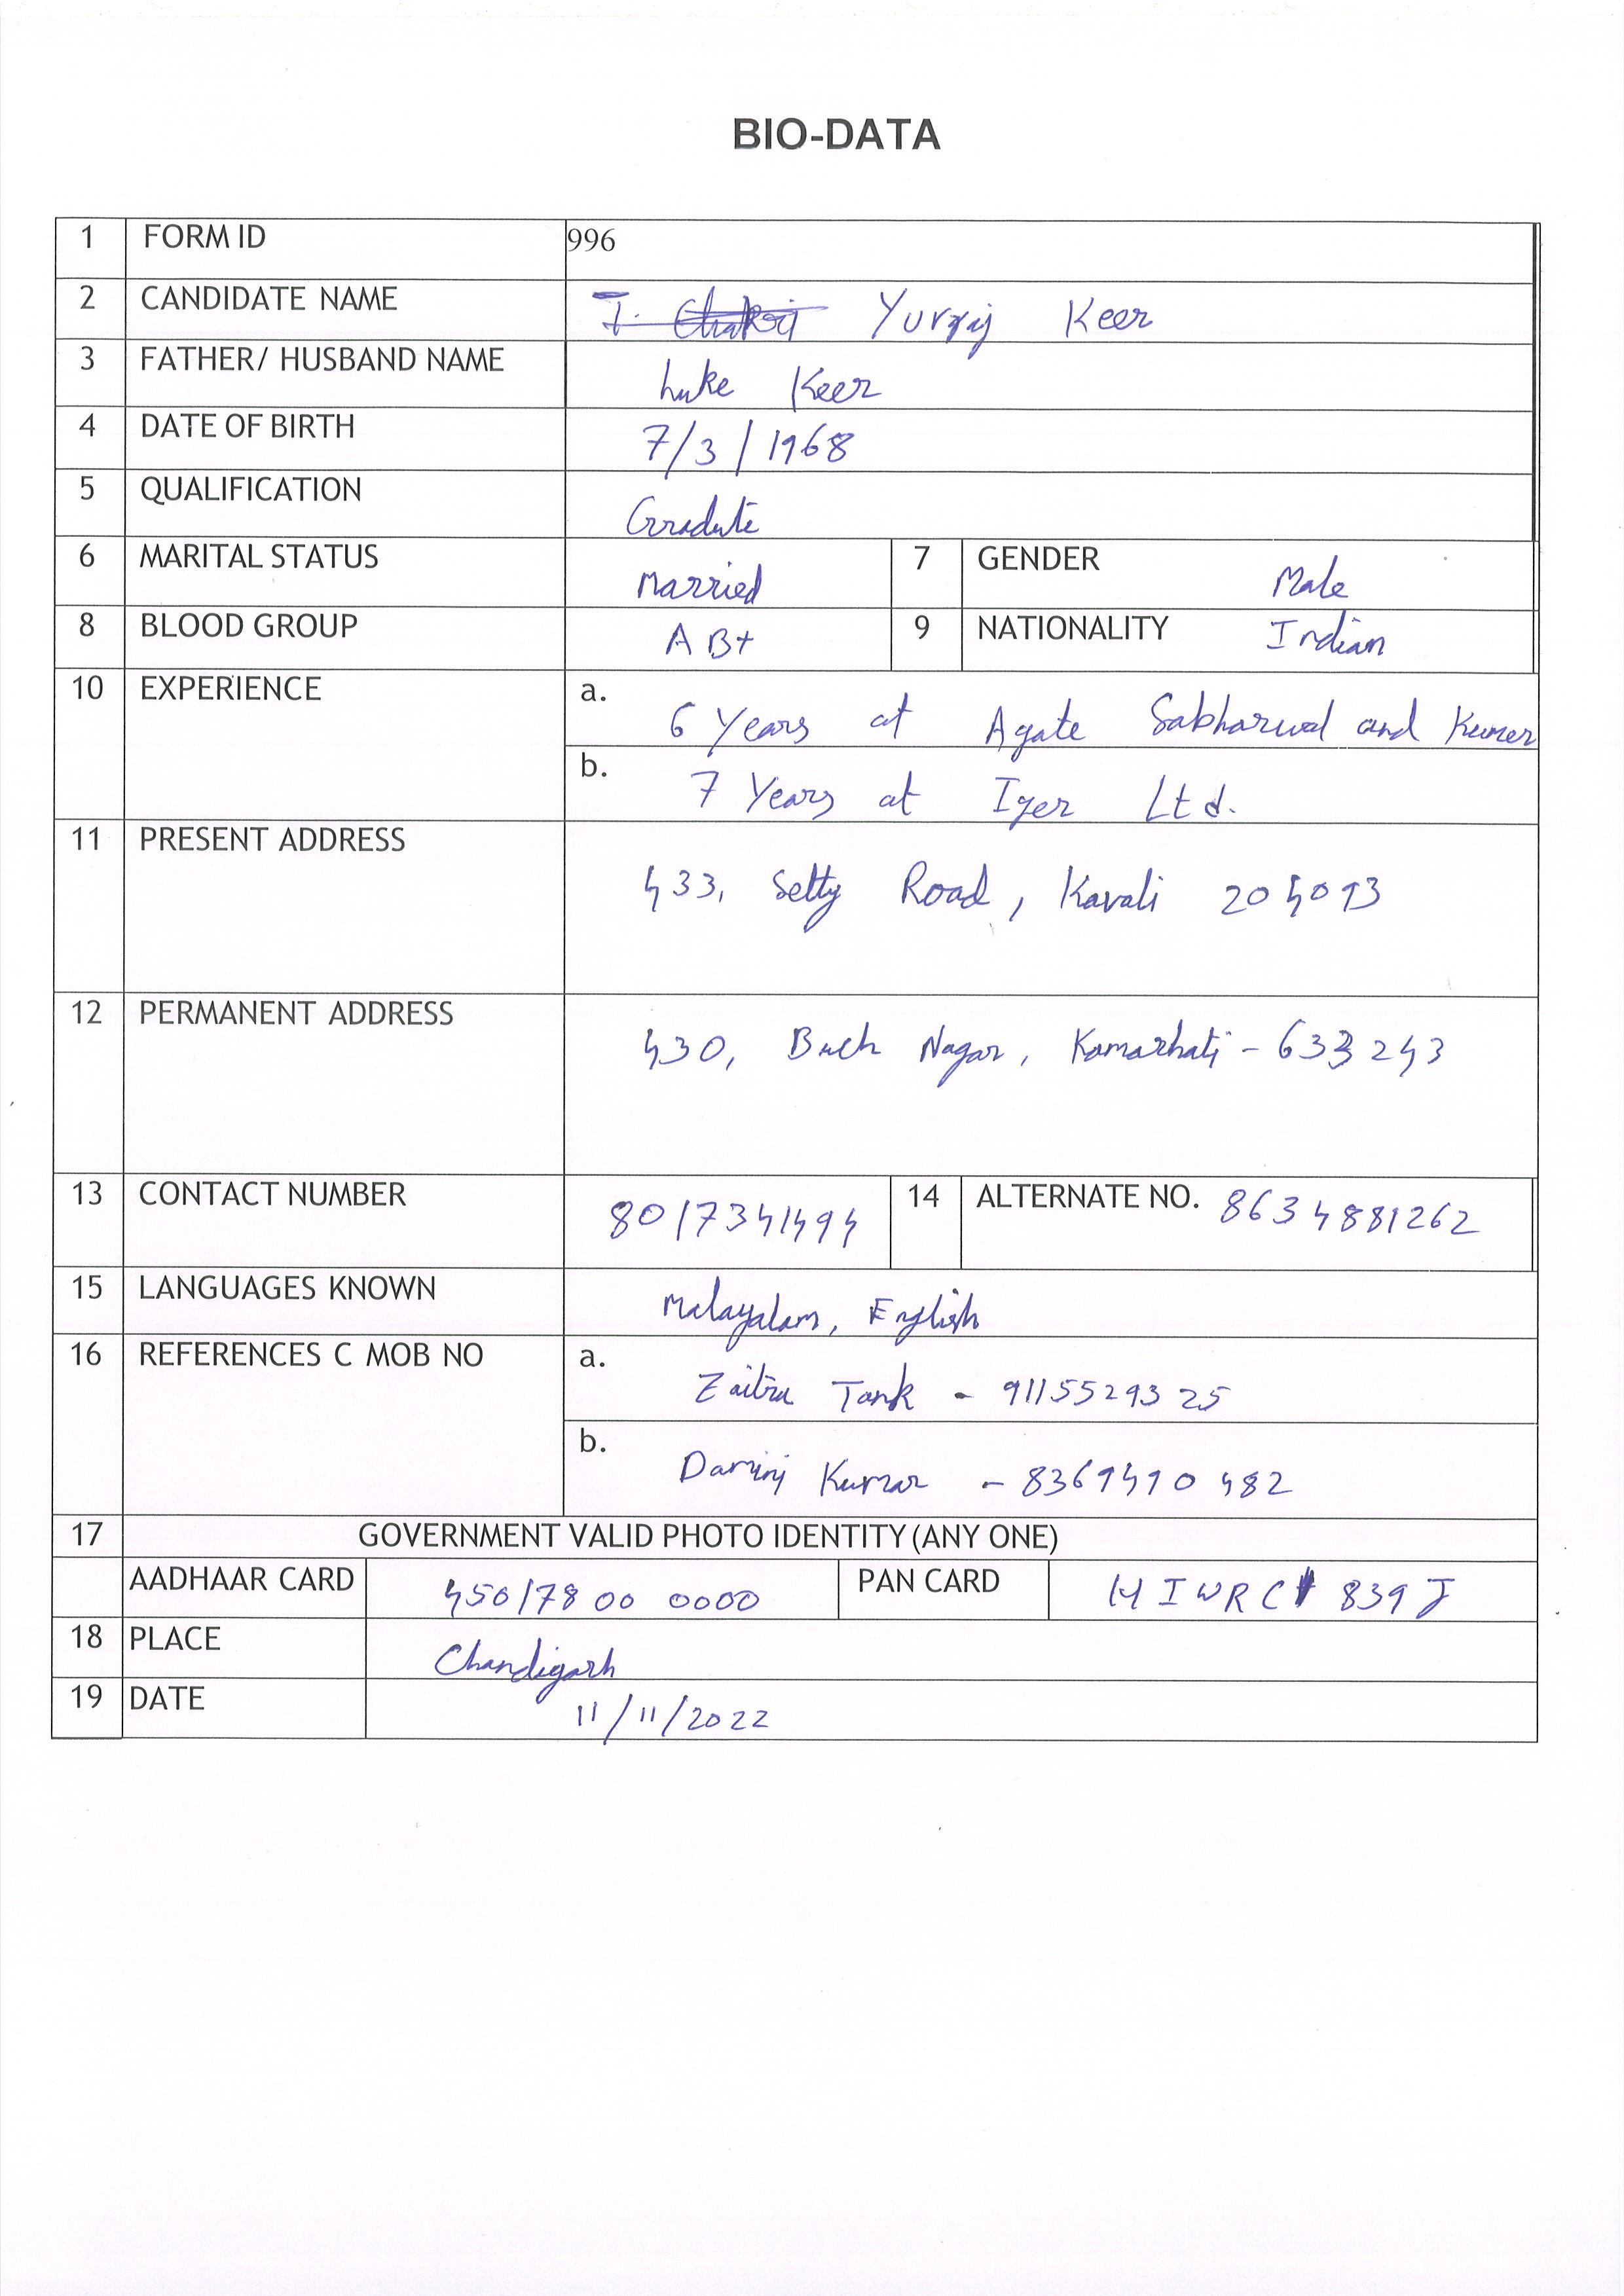 BIO-DATA
1 FORM ID 996
2 CANDIDATE NAME Yuvraj Keer
3 FATHER/ HUSBAND NAME Luke Keer
4 DATE OF BIRTH 7/3/1968
5 QUALIFICATION Gradute
6 MARITAL STATUS Married 7 GENDER Male
8 BLOOD GROUP AB+ 9 NATIONALITY Indian
10 EXPERIENCE a. 6 Years at Agate Sabharwal and Kumer
b. 7 Years at Iyer Ltd.
11 PRESENT ADDRESS 433, Setty Road, Kavali 204093
12 PERMANENT ADDRESS 430, Buch Nagar, Kamarhati - 633243
13 CONTACT NUMBER 8017341494 14 ALTERNATE NO. 8634881262
15 LANGUAGES KNOWN Malayalam, English
16 REFERENCES C MOB NO a. Tank - 9115529325
b. Kumar - 8369490482
17 GOVERNMENT VALID PHOTO IDENTITY (ANY ONE)
AADHAAR CARD 45017800 0000 PAN CARD HIWRC 839J
18 PLACE Chandigarh
19 DATE 11/11/2022